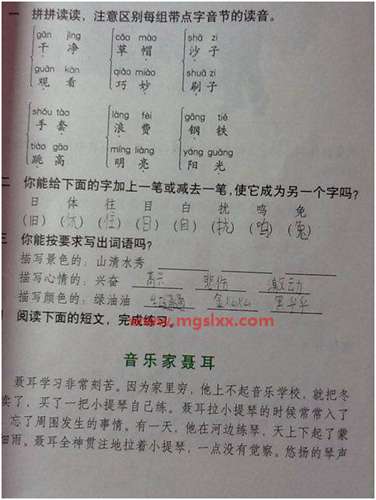 一 拼拼读读，注意区别每组带点字音节的读音。
gān jìng cǎo mào shā zi
干 净 草 帽 沙 子
guān kàn qiǎo miào shuā zi
观 看 巧 妙 刷 子
shǒu tào làng fèi gāng tiě
手 套 浪 费 钢 铁
tiào gāo míng liàng yáng guāng
跳 高 明 亮 阳 光
二 你能给下面的字加上一笔或减去一笔，使它成为另一个字吗？
日 体 往 目 白 扰 呜 免
(旧) ( ) (住) (日) (自) ( ) (鸣) (兔)
三 你能按要求写出词语吗？
描写景色的：山清水秀
描写心情的：兴奋 高兴 悲伤 激动
描写颜色的：绿油油 金灿灿 黑乎乎
阅读下面的短文，完成练习。
www.mgslxx.com
音乐家聂耳
聂耳学习非常刻苦。因为家里穷，他上不起音乐学校，就把冬
卖了，买了一把小提琴自己练。聂耳拉小提琴的时候常常入了
忘了周围发生的事情。有一天，他在河边练琴，天上下起了蒙
细雨。聂耳全神贯注地拉着小提琴，一点没有觉察。悠扬的琴声